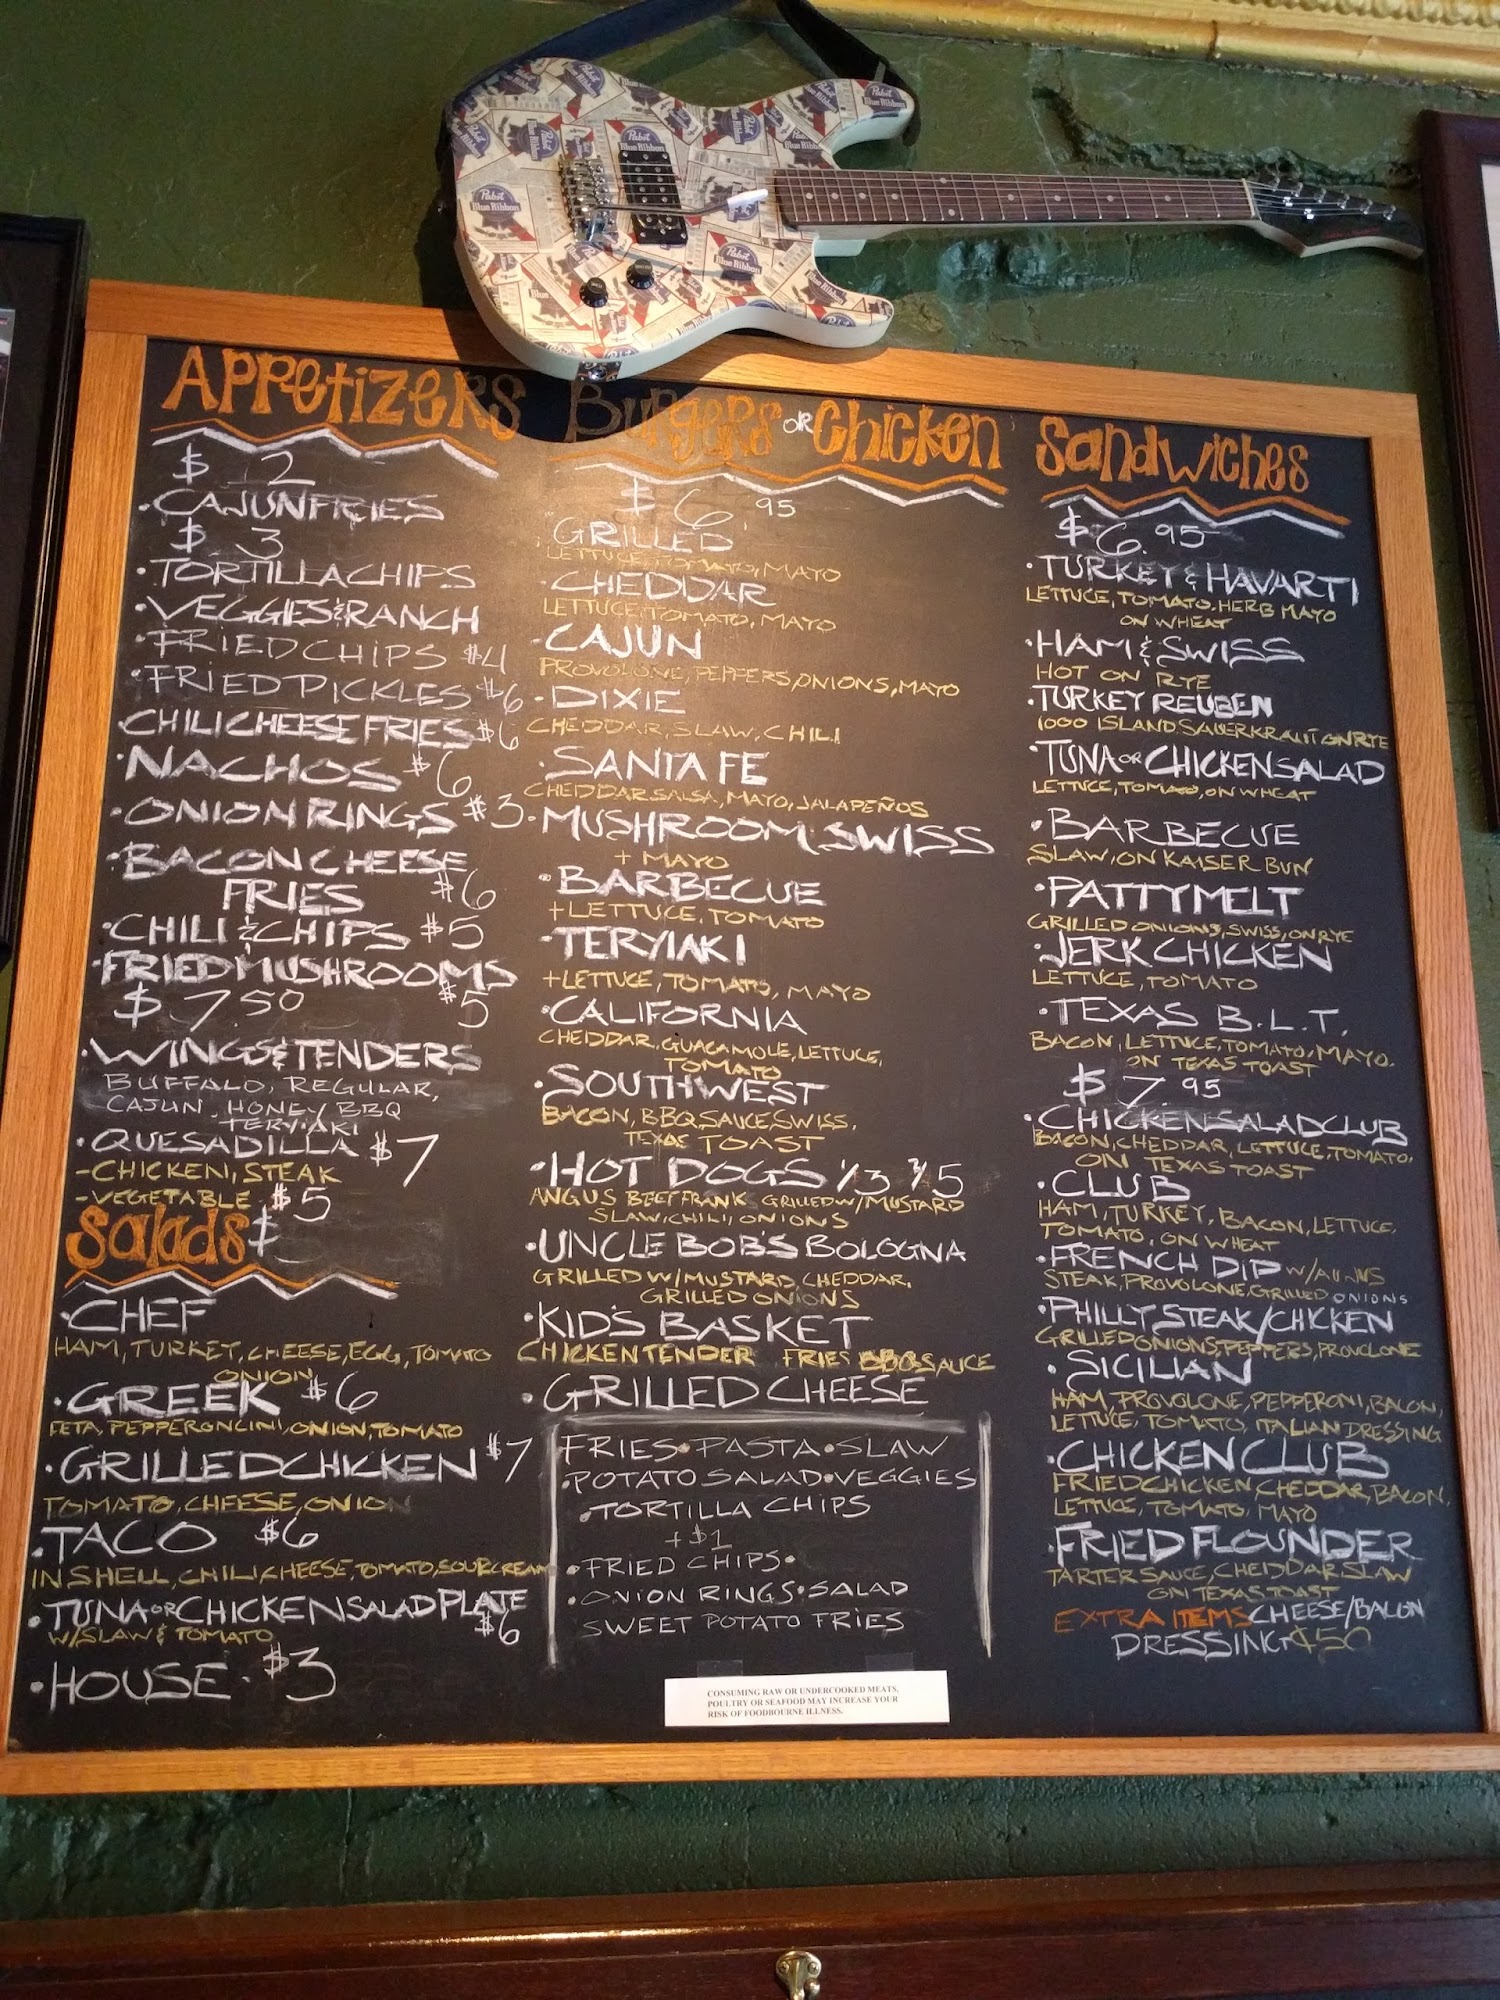 Pabst
Blue Ribbon
Appetizers
$ 2
•CAJUN FRIES
$ 3
•TORTILLA CHIPS
•VEGGIES & RANCH
•FRIED CHIPS $4
•FRIED PICKLES $6
•CHILI CHEESE FRIES $6
•NACHOS $6
•ONION RINGS $3
•BACON CHEESE
FRIES $6
•CHILI & CHIPS $5
•FRIED MUSHROOMS
$ 7.50 $5
•WINGS & TENDERS
BUFFALO, REGULAR,
CAJUN, HONEY BBQ
TERYIAKI
•QUESADILLA $7
-CHICKEN, STEAK
-VEGETABLE $5
Salads $
•CHEF
HAM, TURKEY, CHEESE, EGG, TOMATO
ONION
•GREEK $6
FETA, PEPPERONCINI, ONION, TOMATO
•GRILLED CHICKEN $7
TOMATO, CHEESE, ONION
•TACO $6
IN SHELL, CHILI, CHEESE, TOMATO, SOUR CREAM
•TUNA OR CHICKEN SALAD PLATE
W/SLAW & TOMATO $6
•HOUSE • $3
Burgers OR Chicken
$ 6.95
•GRILLED
LETTUCE, TOMATO, MAYO
•CHEDDAR
LETTUCE, TOMATO, MAYO
•CAJUN
PROVOLONE, PEPPERS, ONIONS, MAYO
•DIXIE
CHEDDAR, SLAW, CHILI
•SANTA FE
CHEDDAR, SALSA, MAYO, JALAPEÑOS
•MUSHROOM, SWISS
+ MAYO
•BARBECUE
+LETTUCE, TOMATO
•TERYIAKI
+LETTUCE, TOMATO, MAYO
•CALIFORNIA
CHEDDAR, GUACAMOLE, LETTUCE,
TOMATO
•SOUTHWEST
BACON, BBQ SAUCE, SWISS,
TEXAS TOAST
•HOT DOGS 1/3 2/5
ANGUS BEEF FRANK GRILLED W/MUSTARD
SLAW, CHILI, ONIONS
•UNCLE BOB'S BOLOGNA
GRILLED W/MUSTARD, CHEDDAR,
GRILLED ONIONS
•KID'S BASKET
CHICKEN TENDER FRIES BBQ SAUCE
•GRILLED CHEESE
FRIES • PASTA • SLAW
•POTATO SALAD • VEGGIES
•TORTILLA CHIPS
+$1
•FRIED CHIPS•
•ONION RINGS • SALAD
SWEET POTATO FRIES
CONSUMING RAW OR UNDERCOOKED MEATS,
POULTRY OR SEAFOOD MAY INCREASE YOUR
RISK OF FOODBOURNE ILLNESS.
Sandwiches
$6.95
•TURKEY & HAVARTI
LETTUCE, TOMATO, HERB MAYO
ON WHEAT
•HAM & SWISS
HOT ON RYE
•TURKEY REUBEN
1000 ISLAND, SAUERKRAUT ON RYE
•TUNA OR CHICKEN SALAD
LETTUCE, TOMATO, ON WHEAT
•BARBECUE
SLAW, ON KAISER BUN
•PATTY MELT
GRILLED ONIONS, SWISS, ON RYE
•JERK CHICKEN
LETTUCE, TOMATO
•TEXAS B.L.T.
BACON, LETTUCE, TOMATO, MAYO.
ON TEXAS TOAST
$ 7.95
•CHICKEN SALAD CLUB
BACON, CHEDDAR, LETTUCE, TOMATO.
ON TEXAS TOAST
•CLUB
HAM, TURKEY, BACON, LETTUCE,
TOMATO, ON WHEAT
•FRENCH DIP W/AU JUS
STEAK, PROVOLONE, GRILLED ONIONS
•PHILLY STEAK/CHICKEN
GRILLED ONIONS, PEPPERS, PROVOLONE
•SICILIAN
HAM, PROVOLONE, PEPPERONI, BACON,
LETTUCE, TOMATO, ITALIAN DRESSING
•CHICKEN CLUB
FRIED CHICKEN, CHEDDAR, BACON,
LETTUCE, TOMATO, MAYO
•FRIED FLOUNDER
TARTER SAUCE, CHEDDAR, SLAW
ON TEXAS TOAST
EXTRA ITEMS CHEESE/BACON
DRESSING ¢50